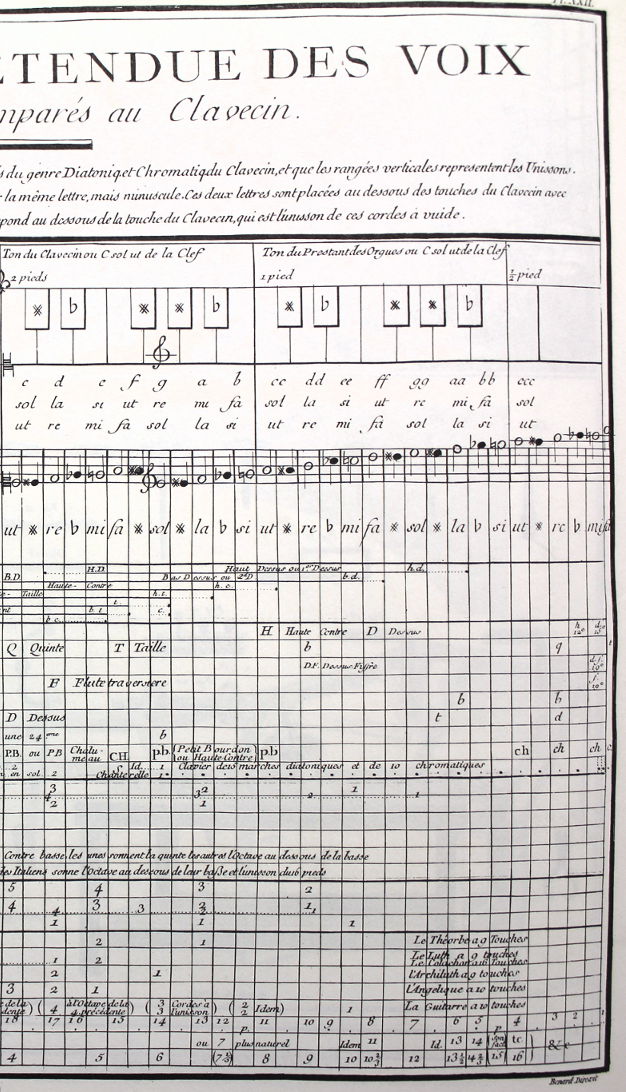 Pl. XXII.
ETENDUE DES VOIX
mparés au Clavecin.
s du genre Diatoniq et Chromatiq du Clavecin, et que les rangées verticales representent les Unissons.
la même lettre, mais minuscule. Ces deux lettres sont placées au dessous des touches du Clavecin avec
pond au dessous de la touche du Clavecin, qui est l'unisson de ces cordes à vuide.
Ton du Clavecin ou C sol ut de la Clef Ton du Prestant des Orgues ou C sol ut de la Clef
2 pieds 1 pied ½ pied
c d e f g a b cc dd ee ff gg aa bb ccc
sol la si ut re mi fa sol la si ut re mi fa sol
ut re mi fa sol la si ut re mi fa sol la si ut
ut re b mi fa sol la b si ut re b mi fa sol la b si ut re b mi fa
H.D. Haut Dessus ou 1er Dessus h.d.
B.D. Bas Dessus ou 2e D b.d.
Haute-Contre h.c.
Taille h.t.
t.
b.t. c.
b.c.
H Haute Contre D Dessus
Q Quinte T Taille b q
D.F. Dessus Fifre
F Flute traversiere
b b
D Dessus t d
une 24 eme b
P.B. ou P.B Chalumeau CH. p.b. (Petit Bourdon ou Haute Contre) p.b ch ch ch
Id. 1 Clavier de 15 marches diatoniques et de 10 chromatiques
en sol 2 Chanterelle 1
3 3 2 1
4 2 1
2 1
Contre basse, les unes sonnent la quinte les autres l'Octave au dessous de la basse
des Italiens sonne l'Octave au dessous de leur basse et l'unisson du 16 pieds
5 4 3 2
4 4 3 3 2 1
1 1 1
2 1 Le Théorbe a 9 Touches
Le Luth a 9 touches
1 2 Le Colachon a 16 Touches
2 1 L'Archiluth a 9 touches
3 2 1 L'Angelique a 10 touches
La Guitarre a 10 touches
de la dente) (4 4 à l'Octave de la 4 precedente) (3 3 Cordes à l'unisson) (2 2 Idem) 1
18 17 16 15 14 13 12 11 10 9 8 7 6 5 4 3 2
p. p.
ou 7 plus naturel Idem 11 Id. 13 14 15 tc &c
4 5 6 (7½) 8 9 10 10⅔ 12 13½ 14⅔ 15 16
Benard Direxit